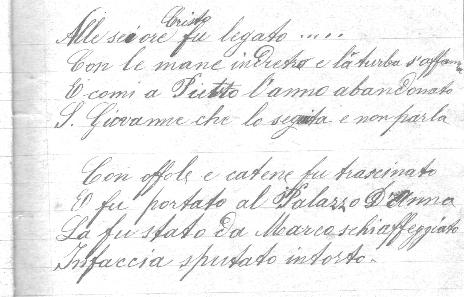 Cristo
Alle sei ore fu legato .....
Con le mane indretro e la turba s'affanna
E comi a Pietto l'anno abandonato
S. Giovanne che lo segita e non parla
Con offole e catene fu trascinato
E fu portato al Palazzo D'Anna
La fu stato da Marco schiaffeggiato
Infaccia sputato intorto.